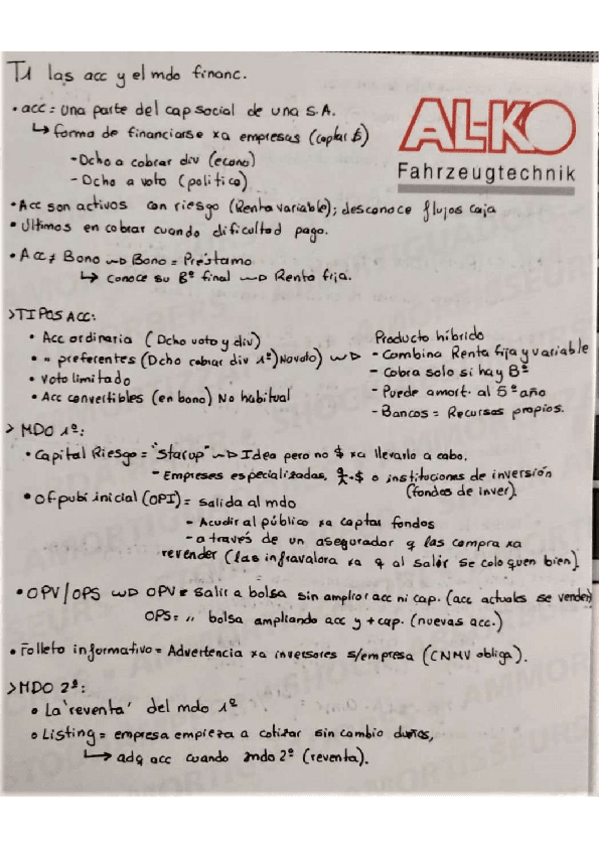 T1 las acc y el mdo financ.
• acc = una parte del cap social de una S.A.
↳ forma de financiarse xa empresas (captar $)
- Dcho a cobrar div (econo)
- Dcho a voto (politico)
AL-KO
Fahrzeugtechnik
• Acc son activos con riesgo (Renta variable); desconoce flujos caja
• Últimos en cobrar cuando dificultad pago.
• Acc ≠ Bono → Bono = Préstamo
↳ conoce su Bº final → Renta fija.
>TIPOS ACC:
• Acc ordinaria (Dcho voto y div)
• " preferentes (Dcho cobrar div 1º) No voto) →
• Voto limitado
• Acc convertibles (en bono) No habitual
Producto híbrido
- Combina Renta fija y variable
- Cobra solo si hay Bº
- Puede amort. al 5º año
- Bancos = Recursos propios.
> MDO 1º:
• Capital Riesgo = "Starup" → Idea pero no $ xa llevarlo a cabo.
- Empreses especializadas, + $ o instituciones de inversión
(fondos de inver).
• Of pubi inicial (OPI) = salida al mdo
- Acudir al público xa captar fondos
- a través de un asegurador q las compra xa
revender (las infravalora xa q al salir se coloquen bien).
• OPV/OPS → OPV = salir a bolsa sin ampliar acc ni cap. (acc actuales se venden)
OPS = " bolsa ampliando acc y + cap. (nuevas acc.)
• Folleto informativo = Advertencia xa inversores s/empresa (CNMV obliga).
>MDO 2º:
• La 'reventa' del mdo 1º
• Listing = empresa empieza a cotizar sin cambio dueños,
↳ adq acc cuando mdo 2º (reventa).